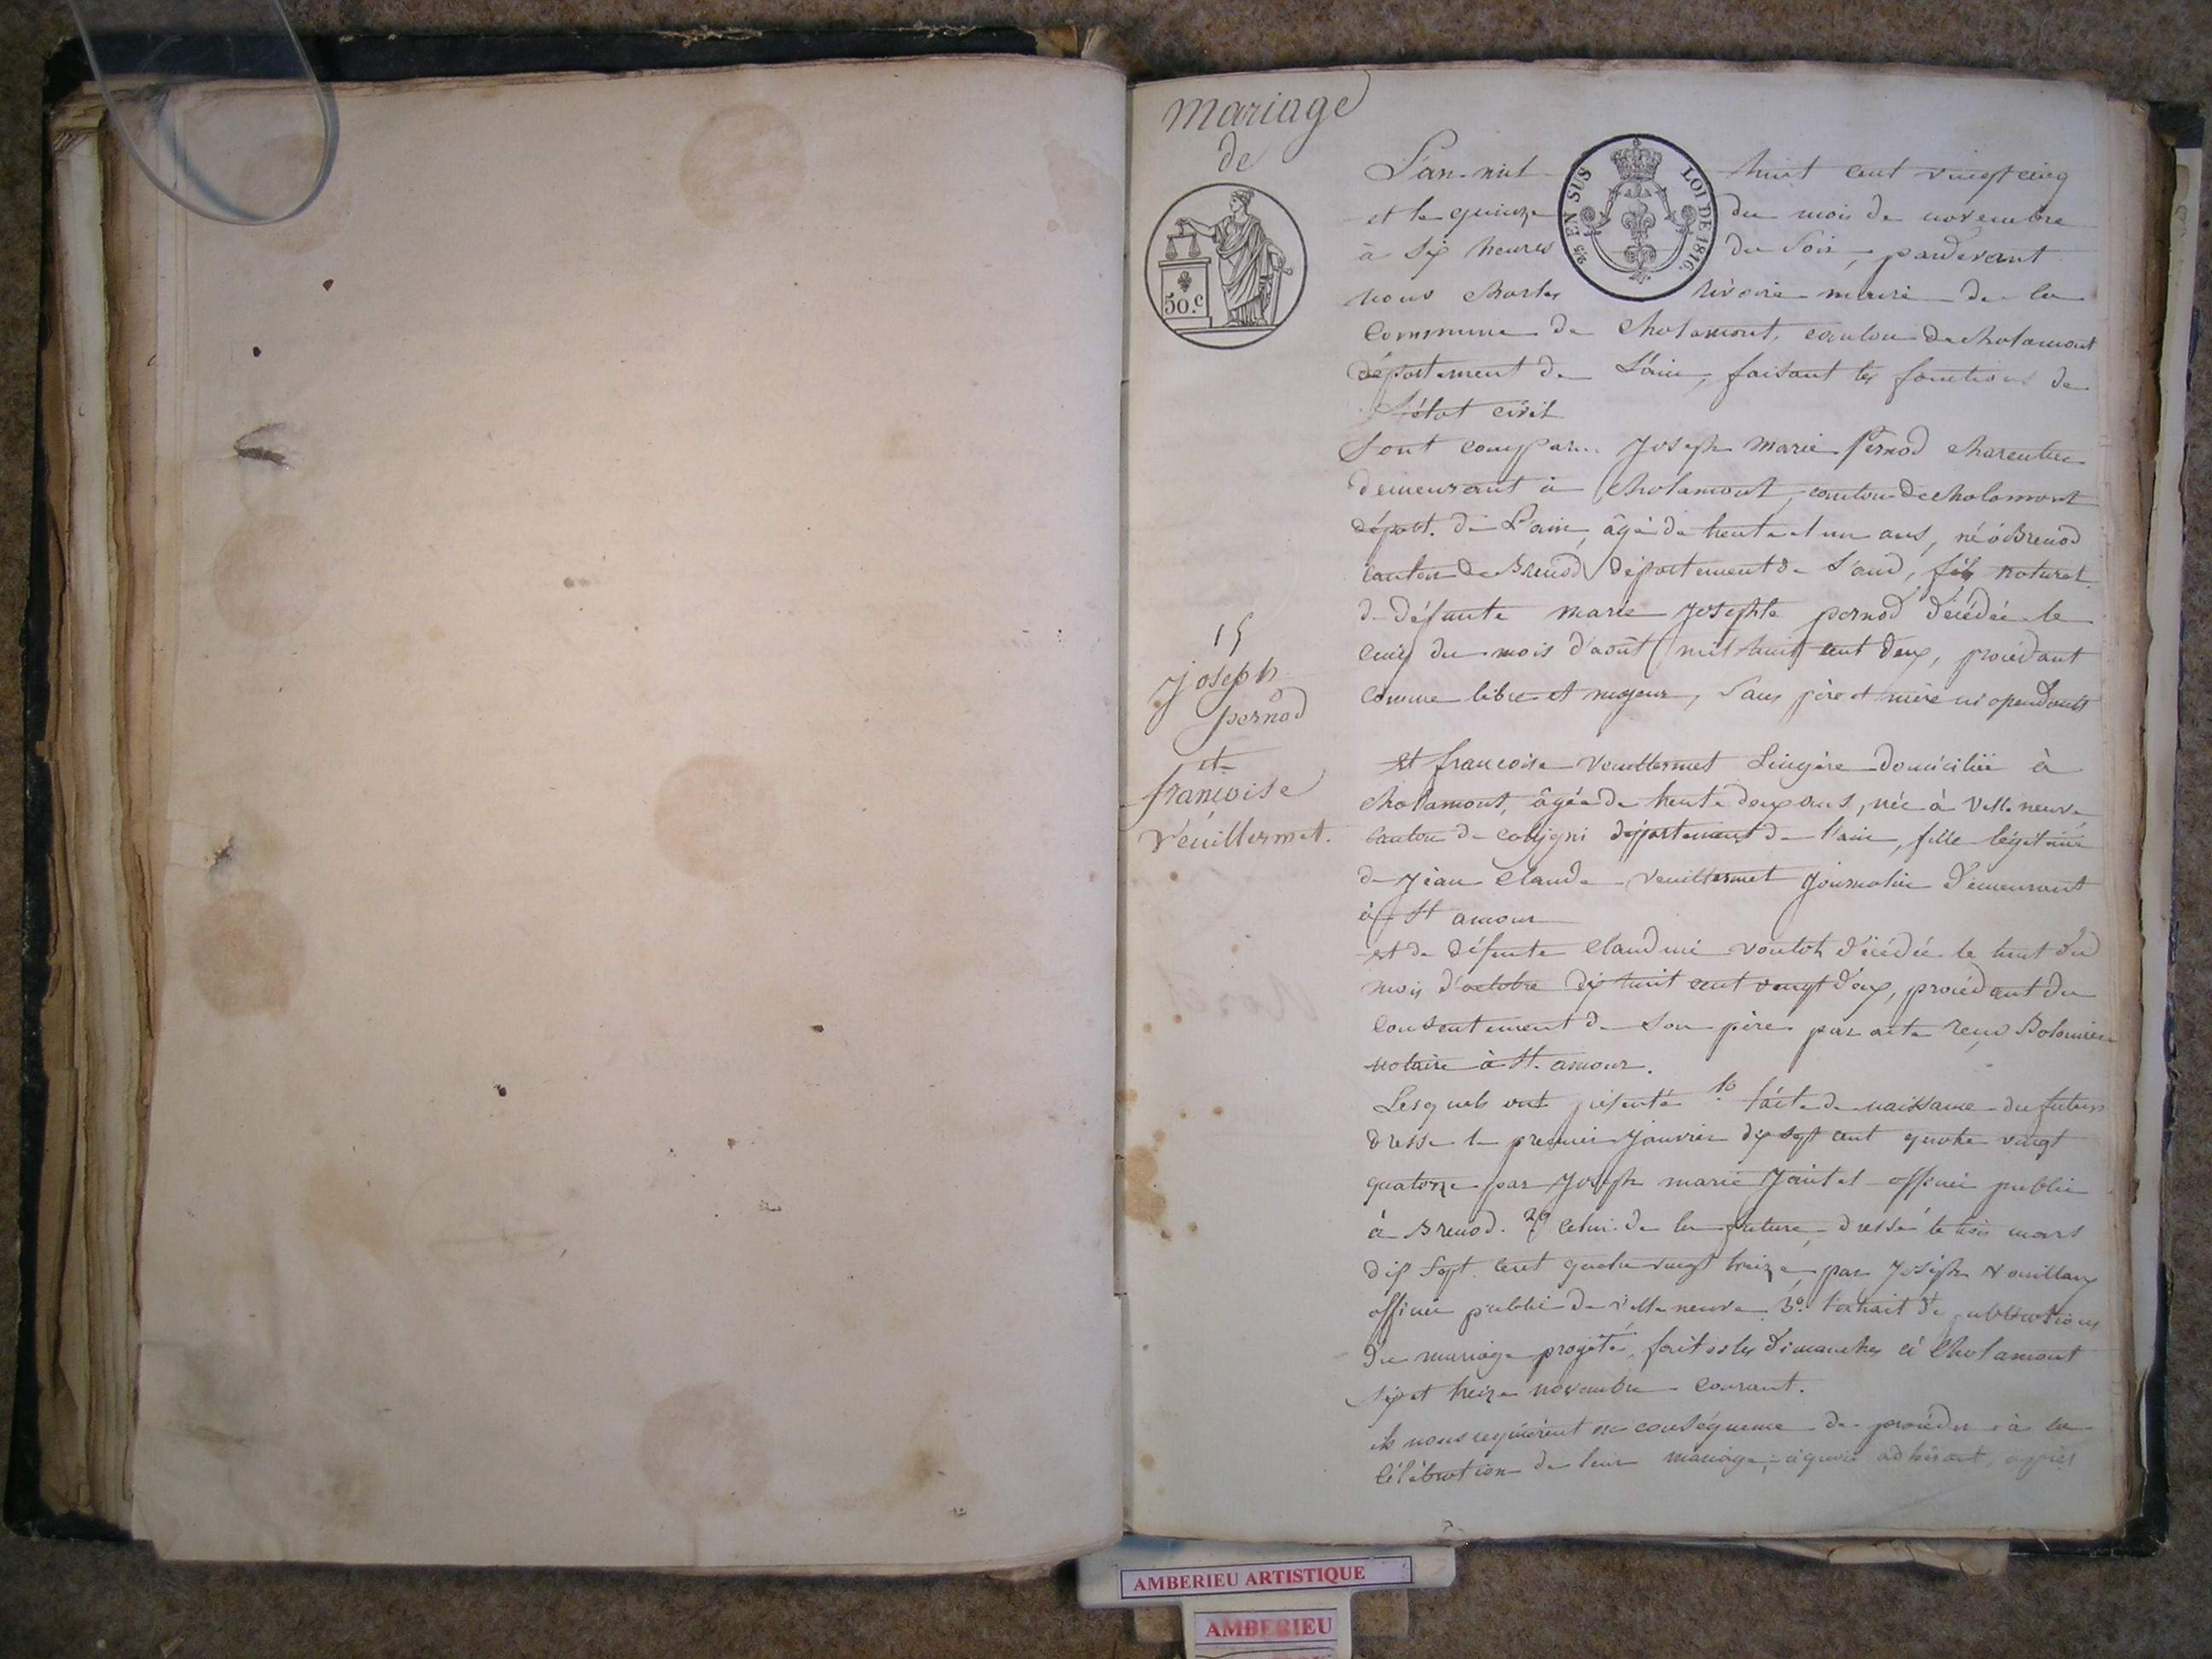 mariage
de
50.c
2/5 EN SUS LOI DE 1816.
15
joseph
pernod
et
françoise
Veuillermet.
L'an mil huit cent vingt cinq
et le quinze du mois de novembre
à six heures du soir, pardevant
nous charles maire de la
commune de Cholamont, canton de cholamont
département de L'ain, faisant les fonctions de
l'état civil
Sont compar.. Joseph Marie Pernod charentier
demeurant à Cholamont, canton de cholamont
départ. de L'ain, âgé de trente et un ans, né à Brenod
canton de Brenod département de L'ain, fils naturel
de défunte marie Josephte pernod décédée le
cinq du mois d'août mil huit cent deux, procédant
comme libre et majeur, sans père et mère ni
et francoise veuillermet Lingère domiciliée à
cholamont, âgée de trente deux ans, née à Villeneuve
canton de coligni département de l'ain, fille légitime
de Jean Claude veuillermet journalier demeurant
à St amour
et de défunte Claudine décédée le huit du
mois d'octobre dix huit cent vingt deux, procédant du
consentement de son père par acte reçu
notaire à St. amour.
Lesquels ont présenté 1o l'acte de naissance du futur
dressé le premier janvier dix sept cent quatre vingt
quatorze par Joseph marie Jantet officier public
à Brenod. 2o celui de la future, dressé le trois mars
dix sept cent quatre vingt treize, par Joseph
officier public de villeneuve 3o. l'extrait de publications
du mariage projeté, faites les dimanches à Cholamont
six et treize novembre courant.
ils nous requièrent en conséquence de procéder à la
célébration de leur mariage; à quoi adhérant, après
AMBERIEU ARTISTIQUE
AMBERIEU